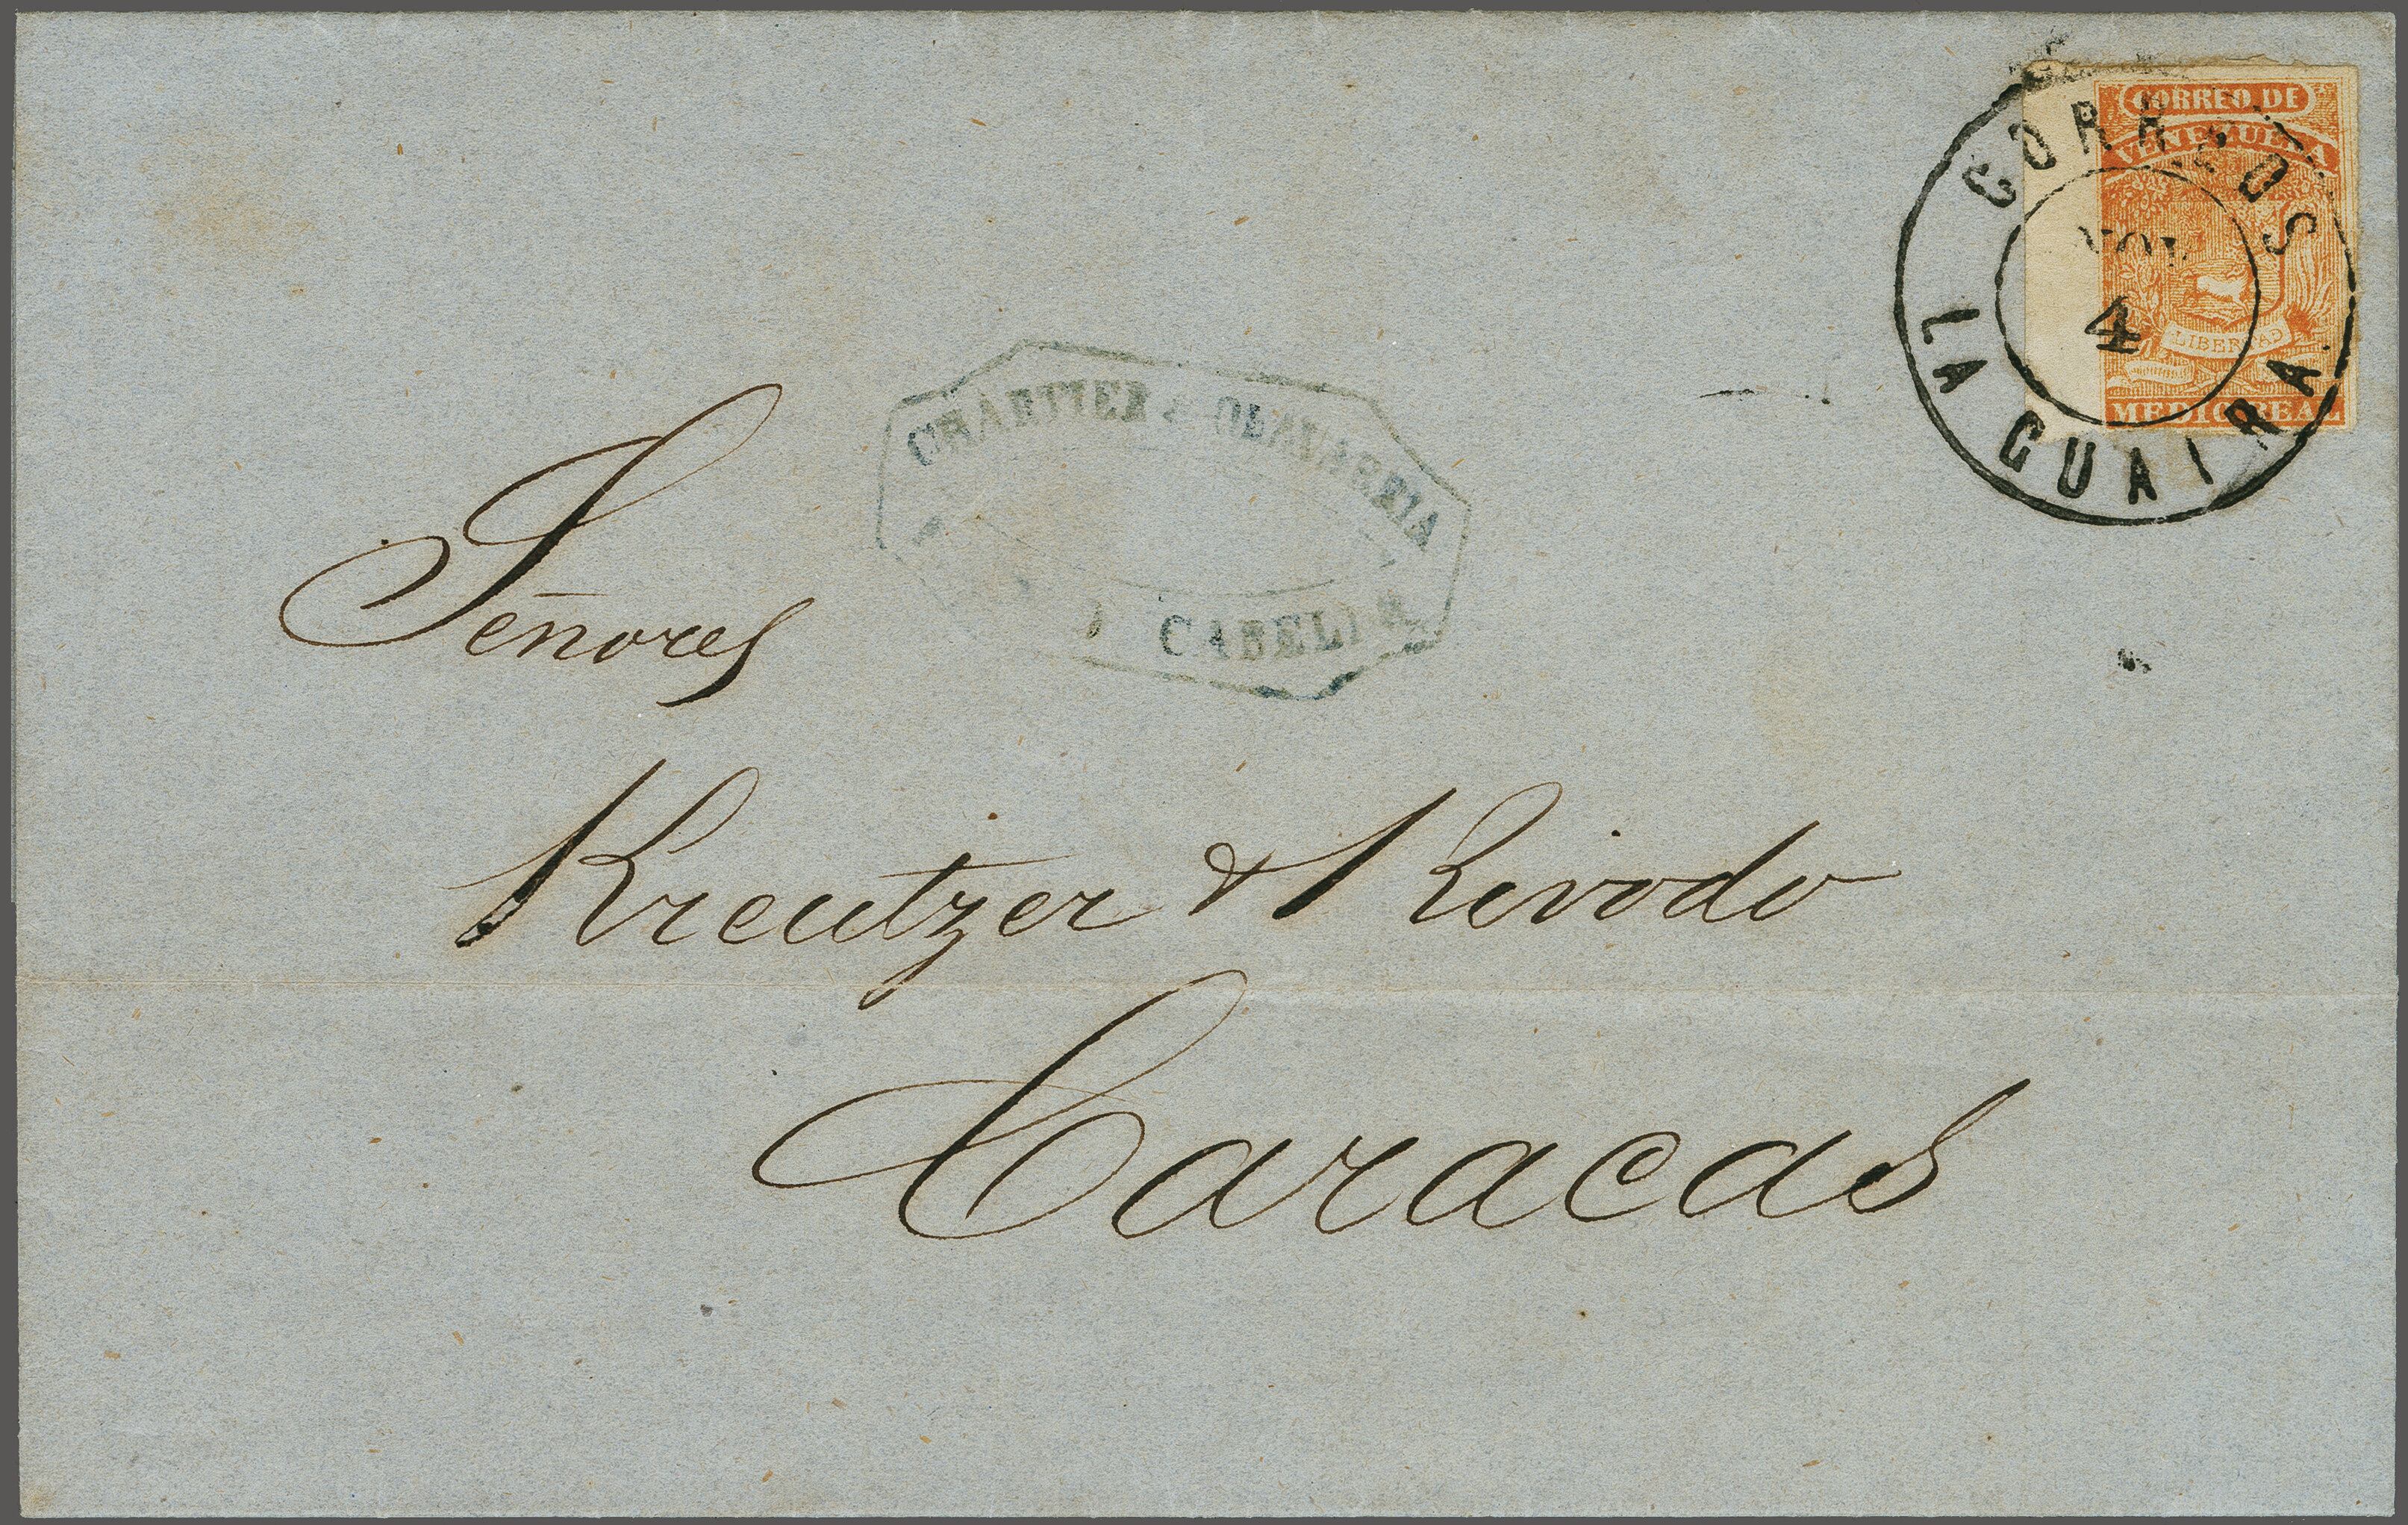 CORREO DE
VENEZUELA
LIBERTAD
MEDIO REAL
CORREOS
NOV
4
LA GUAIRA
CHARTIER & OLAVARRIA
CABELLO
Señores
Kreutzer & Rivodo
Caracas